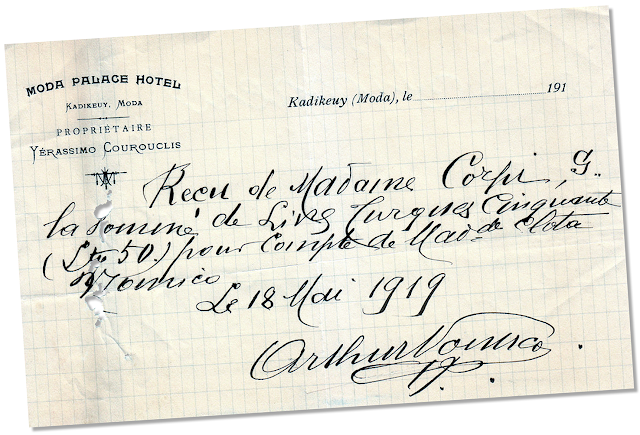 MODA PALACE HOTEL
KADIKEUY, MODA
PROPRIÉTAIRE
YÉRASSIMO COUROUCLIS
Kadikeuy (Moda), le 191
Reçu de Madame Corpi, G..
la somme de Livs Turques Cinquante
(Ltq 50.) pour Compte de Mad de
Le 18 Mai 1919
Arthur